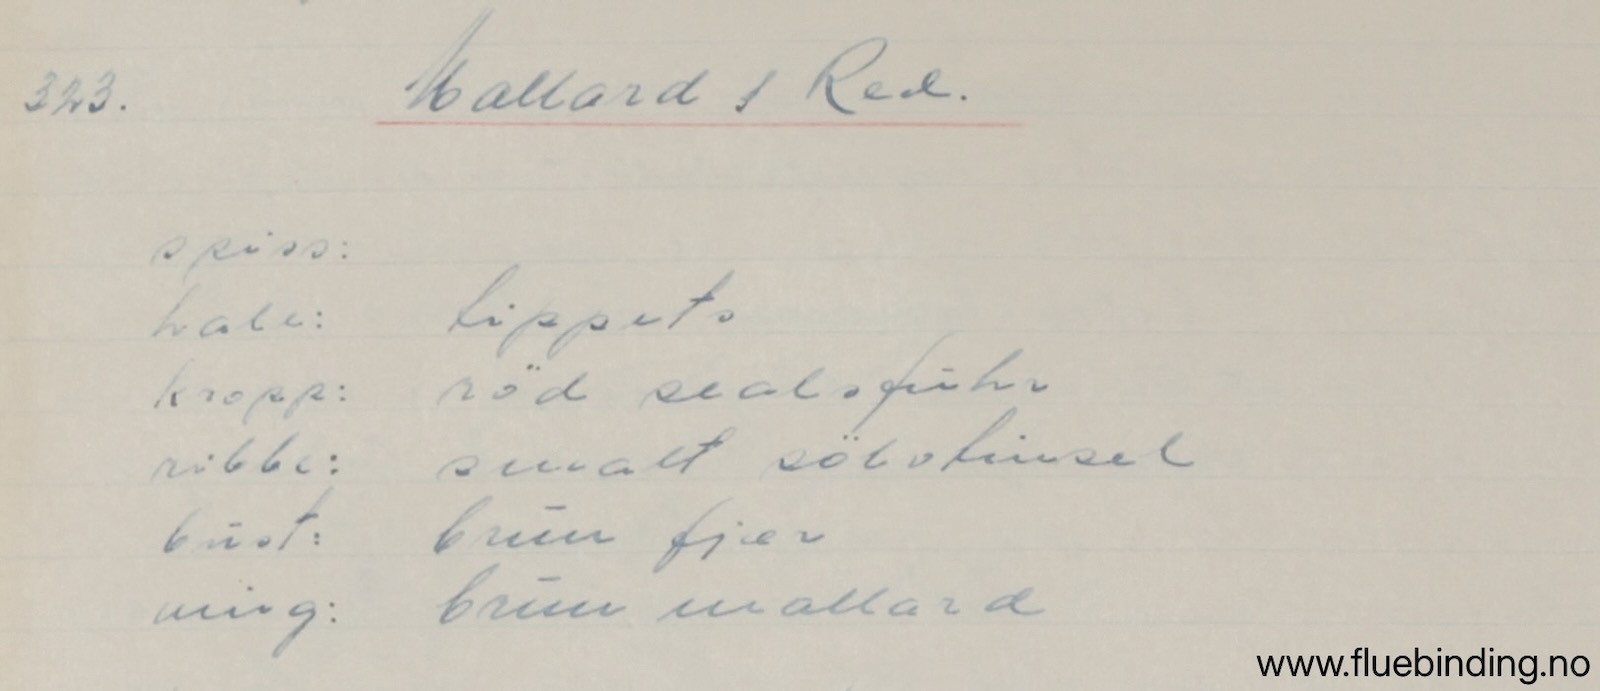 323. Mallard & Red.
spiss:
hale: tippets
kropp: röd sealsfuhr
ribbe: smalt sölvtinsel
bust: brun fjær
ving: brun mallard
www.fluebinding.no